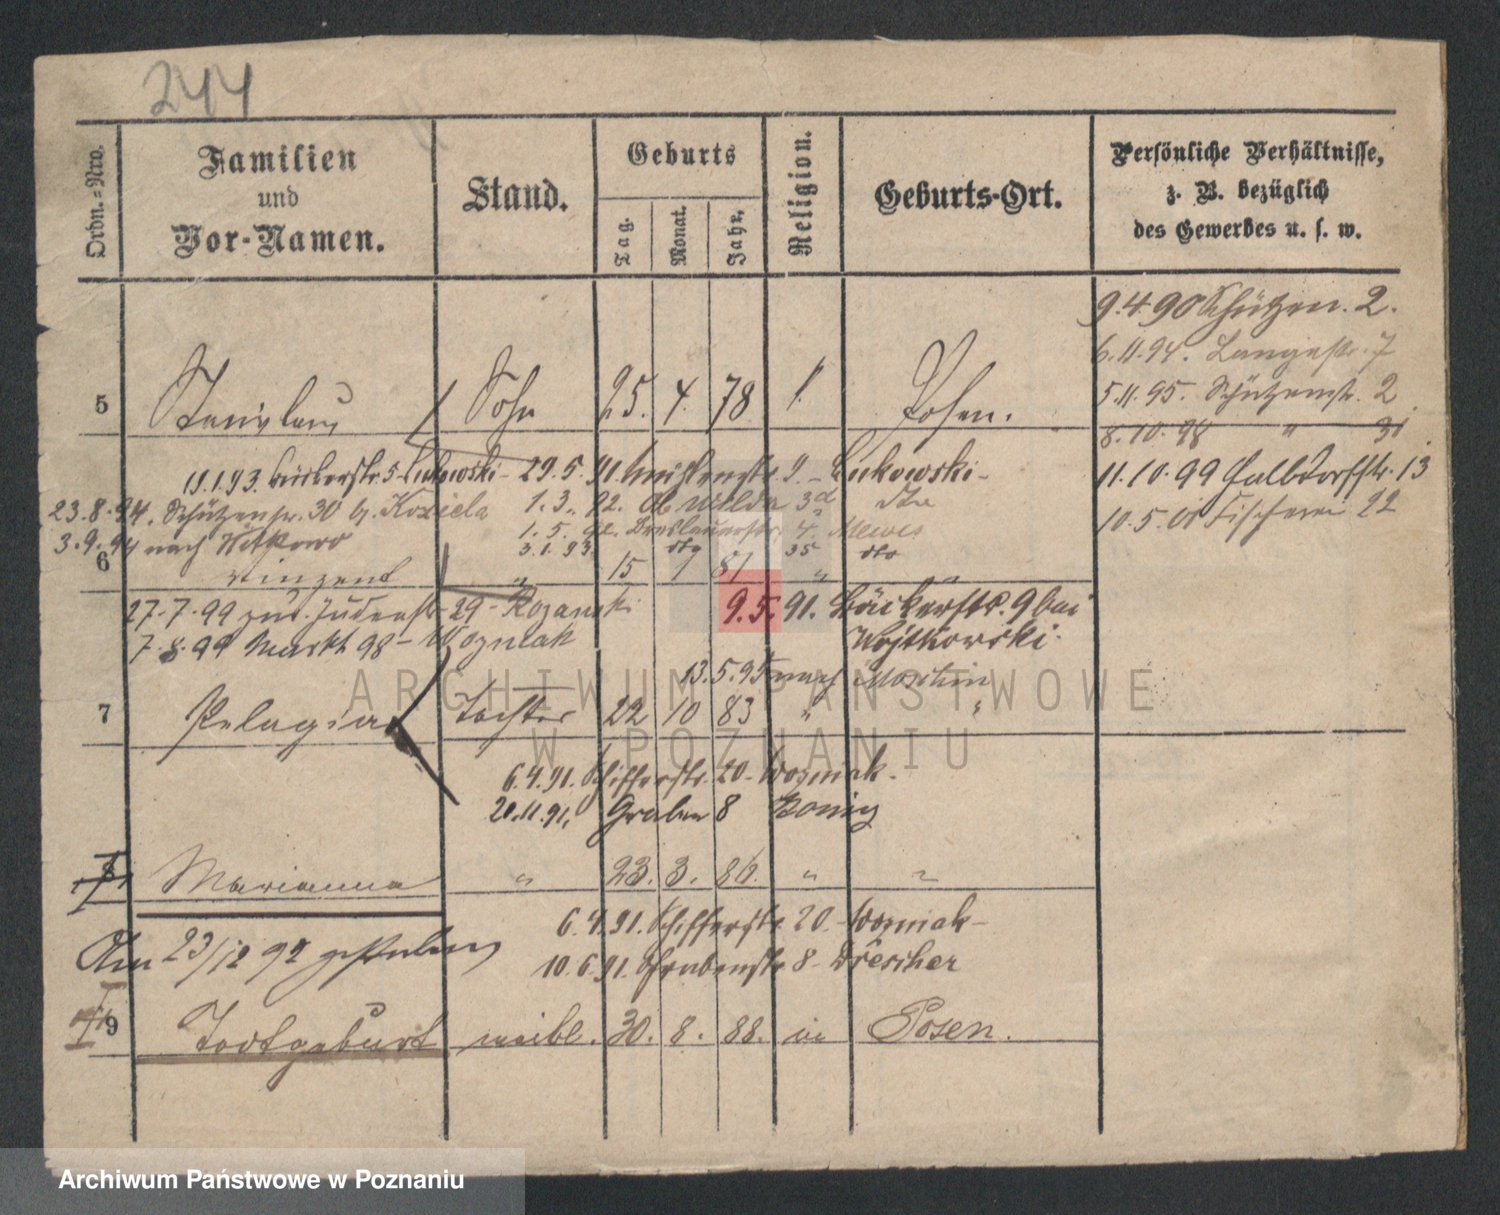 244
Ordn.=Nro.
Familien
und
Vor-Namen.
Stand.
Geburts
Tag.
Monat.
Jahr.
Religion.
Geburts-Ort.
Persönliche Verhältnisse,
z. B. bezüglich
des Gewerbes u. s. w.
9.4.90 Schützen. 2.
6.11.94. Langestr. 7
5.11.95. Schützenstr. 2
8.10.98 " 31
11.10.99 Halbdorfstr. 13
10.5.01 Fischerei 22
5 Stanislaus Sohn 25. 4. 78 Posen.
19.1.93. Bäckerstr. 5 Lukowski - 29.5.91. 9 - Lukowski -
23.8.94. Schützenstr. 30 b. Koziela 1.3.92. Ob Wilda 3a dto
3.9.94 nach Witkowo 1.5.92. Breslauerstr. 4. Mewes
3.1.93. dto 35 dto
6 Vinzent " 15 1 81 " "
27.7.99 zur. Judenstr. 29 - Rozanski 9.5.91. Bäckerstr. 9 bei
7.8.99 Markt 98 - Wozniak Wojtkowski.
13.5.95 nach Moschin
7 Pelagia Tochter 22 10 83 " "
6.4.91. Schifferstr. 20 - Wozniak -
20.11.91. Graben 8 König
8 Marianna " 23. 3. 86. " "
6.4.91. Schifferstr. 20. - Wozniak -
Am 23/12 92 gestorben 10.6.91. Grabenstr. 8 - Drescher
9 Todtgeburt weibl. 30. 8. 88. in Posen.
ARCHIWUM PAŃSTWOWE
W POZNANIU
Archiwum Państwowe w Poznaniu